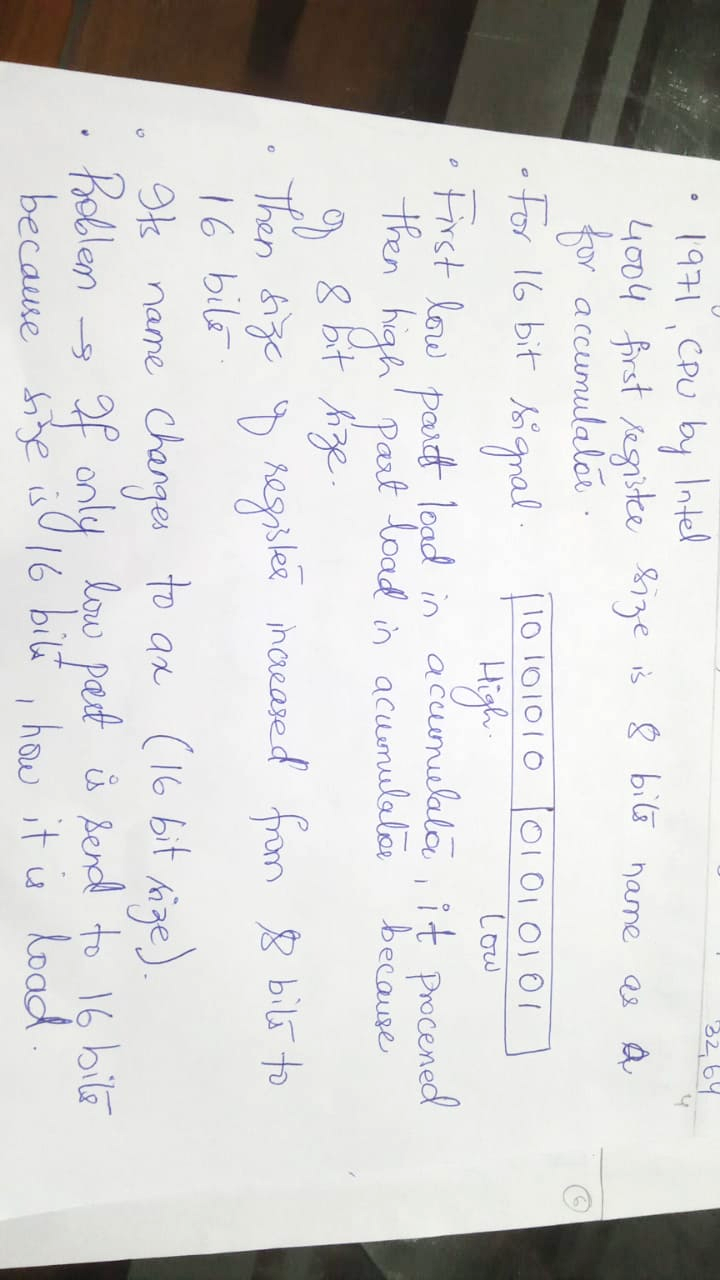 32,64
• 1971, CPU by Intel
4004 first register size is 8 bits name as a
for accumulator.
• For 16 bit signal.
10101010 01010101
High. Low
• First low part load in accumulator, it processed
then high part load in acumulator because
of 8 bit size.
• Then size of register increased from 8 bits to
16 bits.
• Its name changes to ax (16 bit size).
• Problem → If only low part is send to 16 bits
because size is 16 bits, how it is load.
6